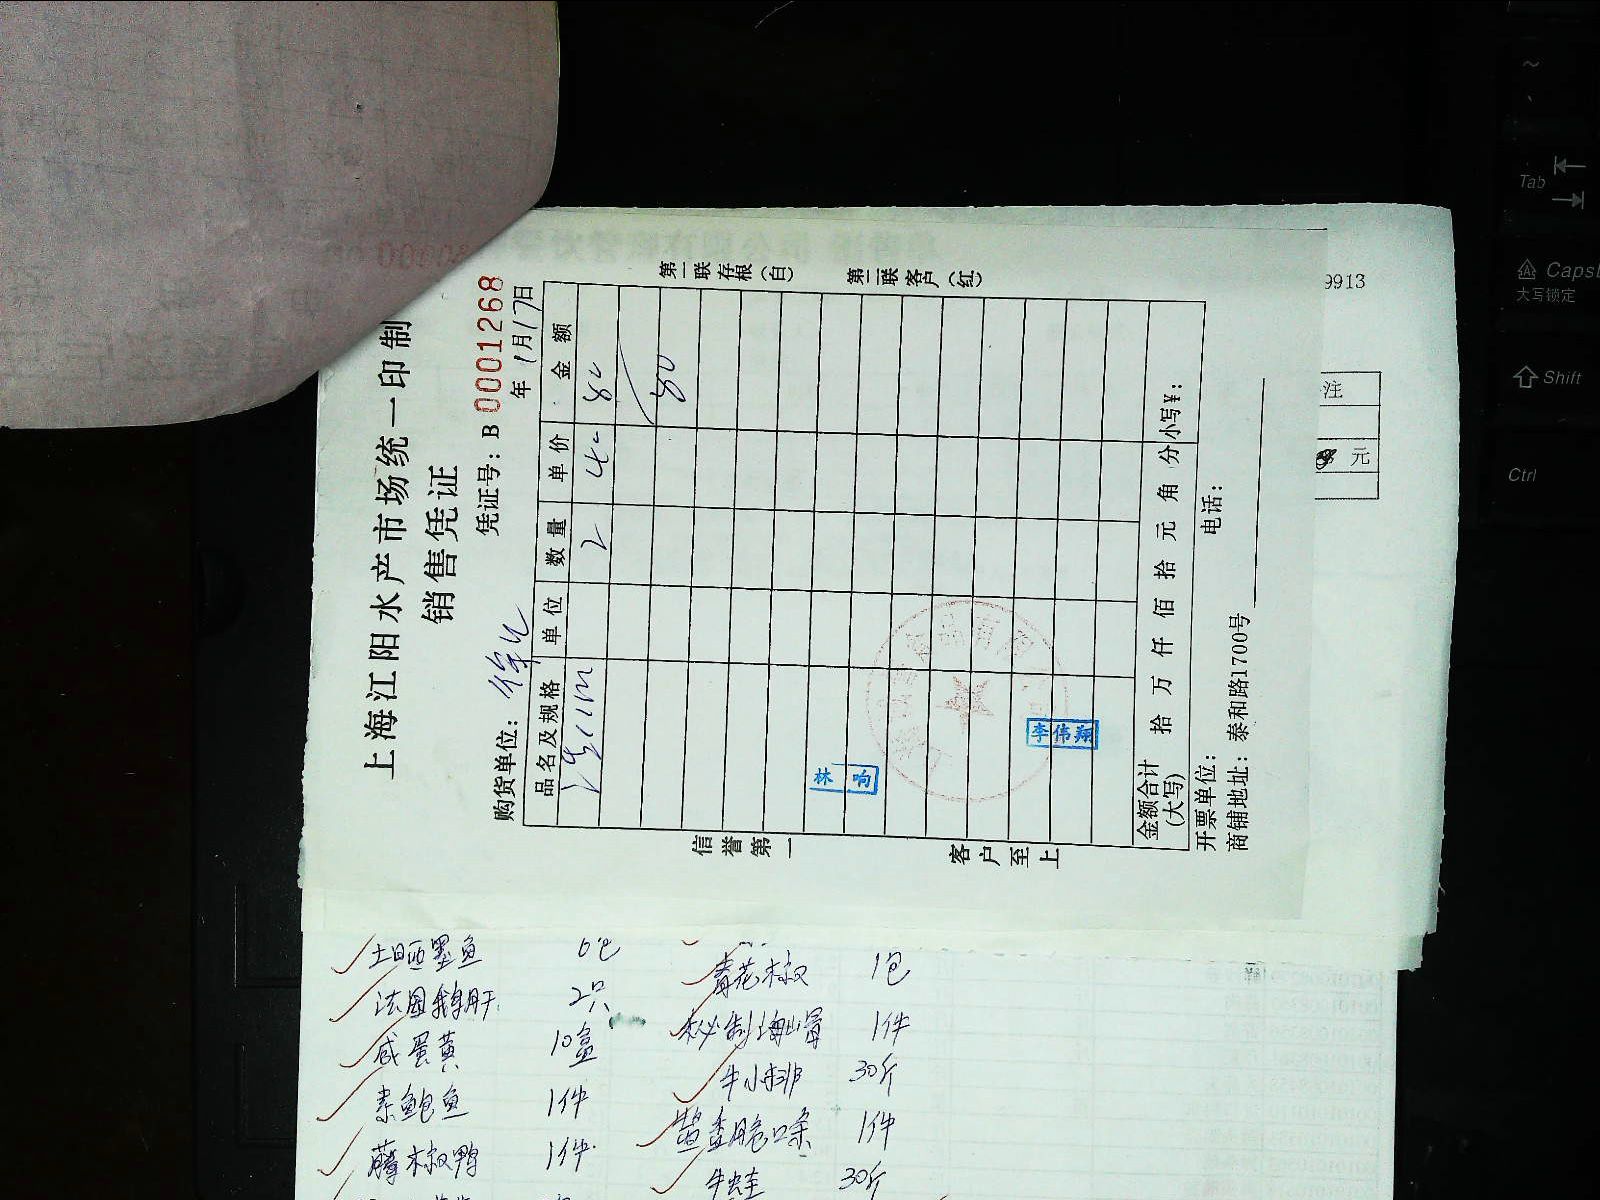 上海江阳水产市场统一印制
销售凭证
凭证号：B 0001268
购货单位：
年 1月17日
品名及规格 单位 数量 单价 金额
2 40 80
80
金额合计（大写） 拾 万 仟 佰 拾 元 角 分 小写¥：
开票单位： 电话：
商铺地址：泰和路1700号
第一联存根（白） 第二联客户（红）
信誉第一 客户至上
李伟翔
9913
注
元
土晒墨鱼 6包
青花椒 1包
法国鹅肝 2只
秘制海山蜇 1件
咸蛋黄 10盒
牛小排 30斤
素鲍鱼 1件
1件
藤椒鸭 1件
牛蛙 30斤
~
Tab
Caps
大写锁定
Shift
Ctrl